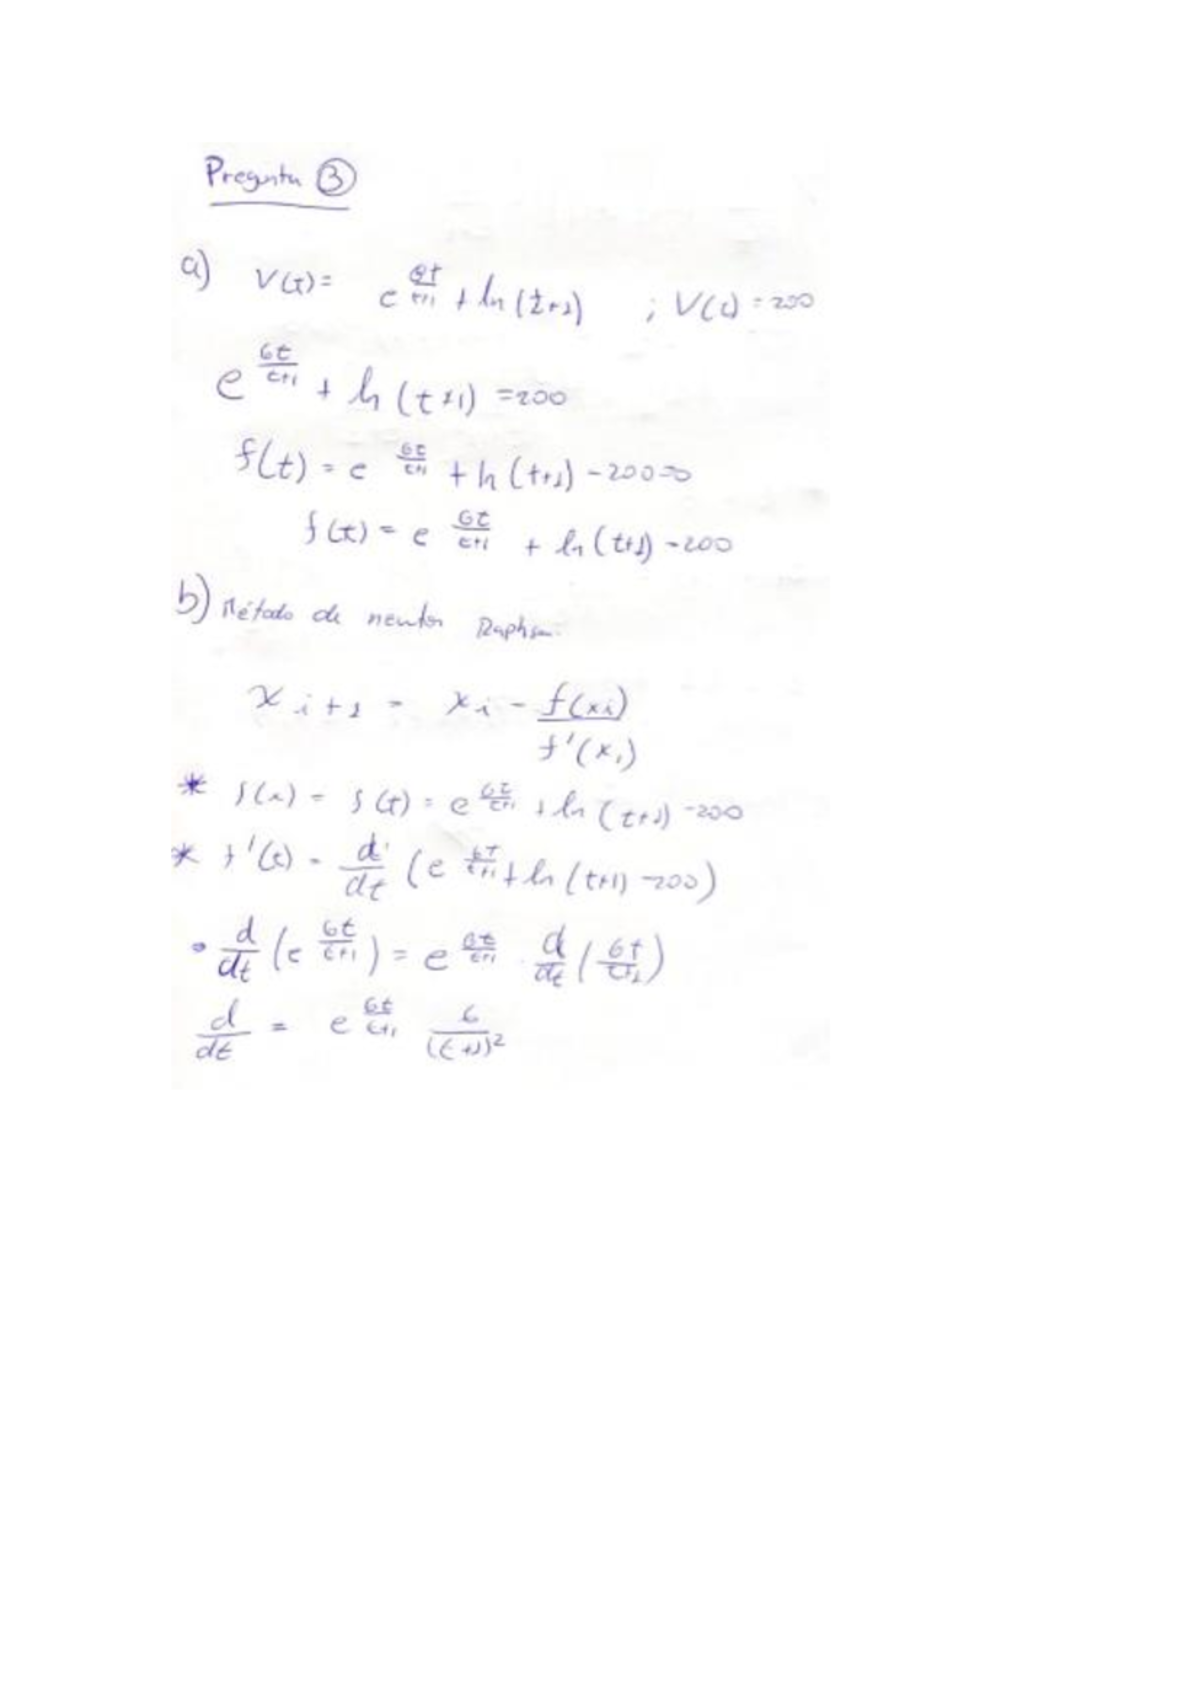 Pregunta ③
a) V(t) = e^(6t/(t+1)) + ln(t+1) ; V(t) = 200
e^(6t/(t+1)) + ln(t+1) = 200
f(t) = e^(6t/(t+1)) + ln(t+1) - 200 = 0
f(t) = e^(6t/(t+1)) + ln(t+1) - 200
b) Método de newton Raphson.
x i+1 = xi - f(xi)/f'(xi)
* f(x) = f(t) = e^(6t/(t+1)) + ln(t+1) - 200
* f'(t) = d/dt (e^(6t/(t+1)) + ln(t+1) - 200)
• d/dt (e^(6t/(t+1))) = e^(6t/(t+1)) · d/dt (6t/(t+1))
d/dt = e^(6t/(t+1)) 6/(t+1)²